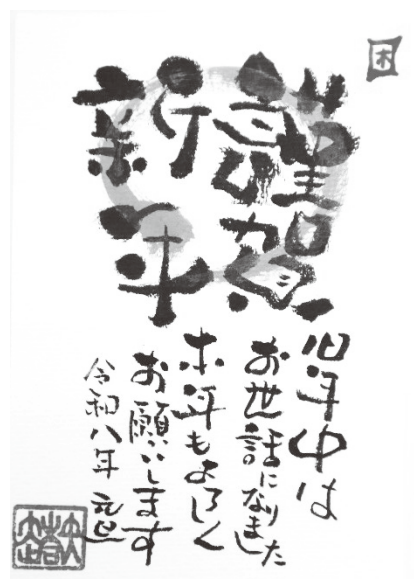 木
謹賀
新年
旧年中は
お世話になりました
本年もよろしく
お願いします
令和八年 元旦